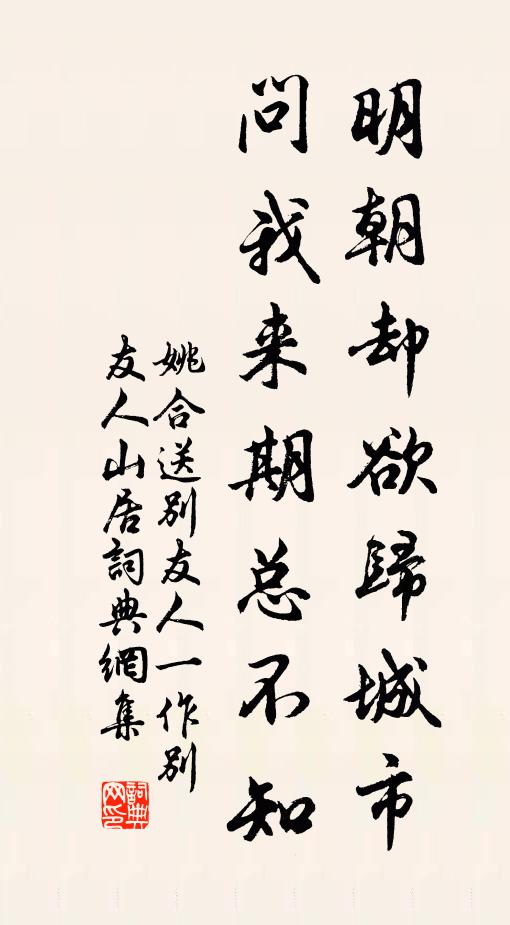 明朝却欲歸城市
問我来期总不知
姚合送别友人一作别
友人山居詞典網集
詞典网印